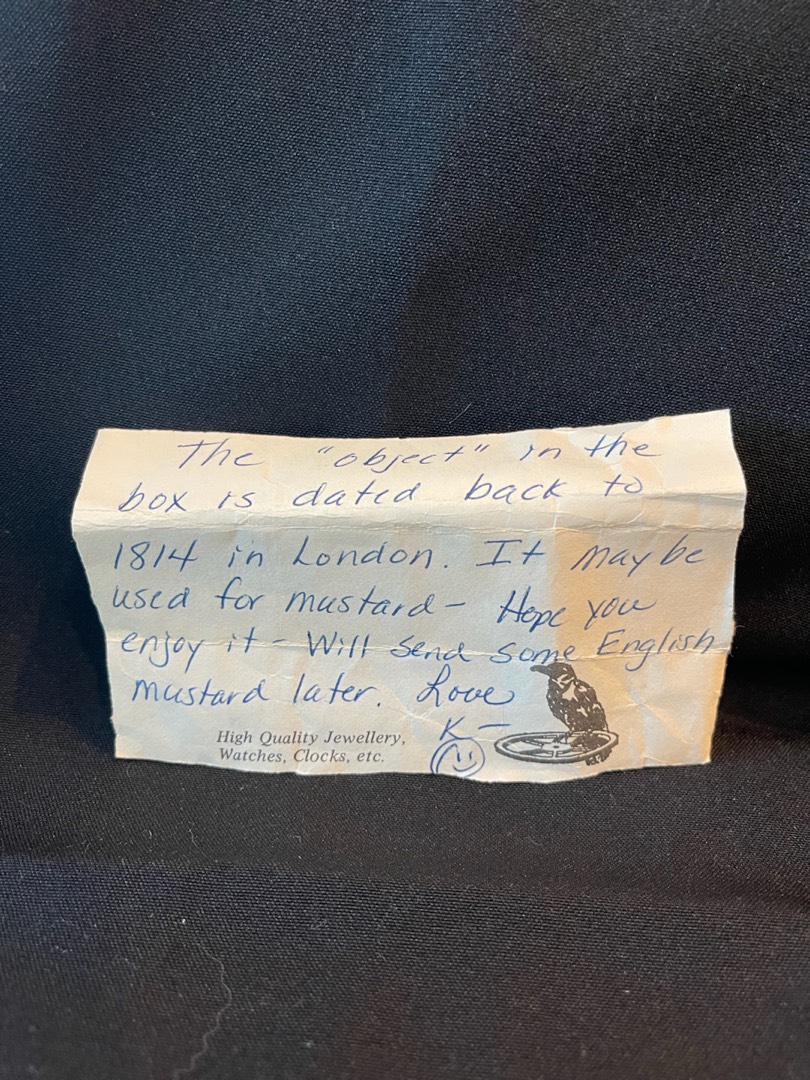 The "object" in the
box is dated back to
1814 in London. It may be
used for mustard - Hope you
enjoy it - Will send some English
mustard later. Love
K -
High Quality Jewellery,
Watches, Clocks, etc.